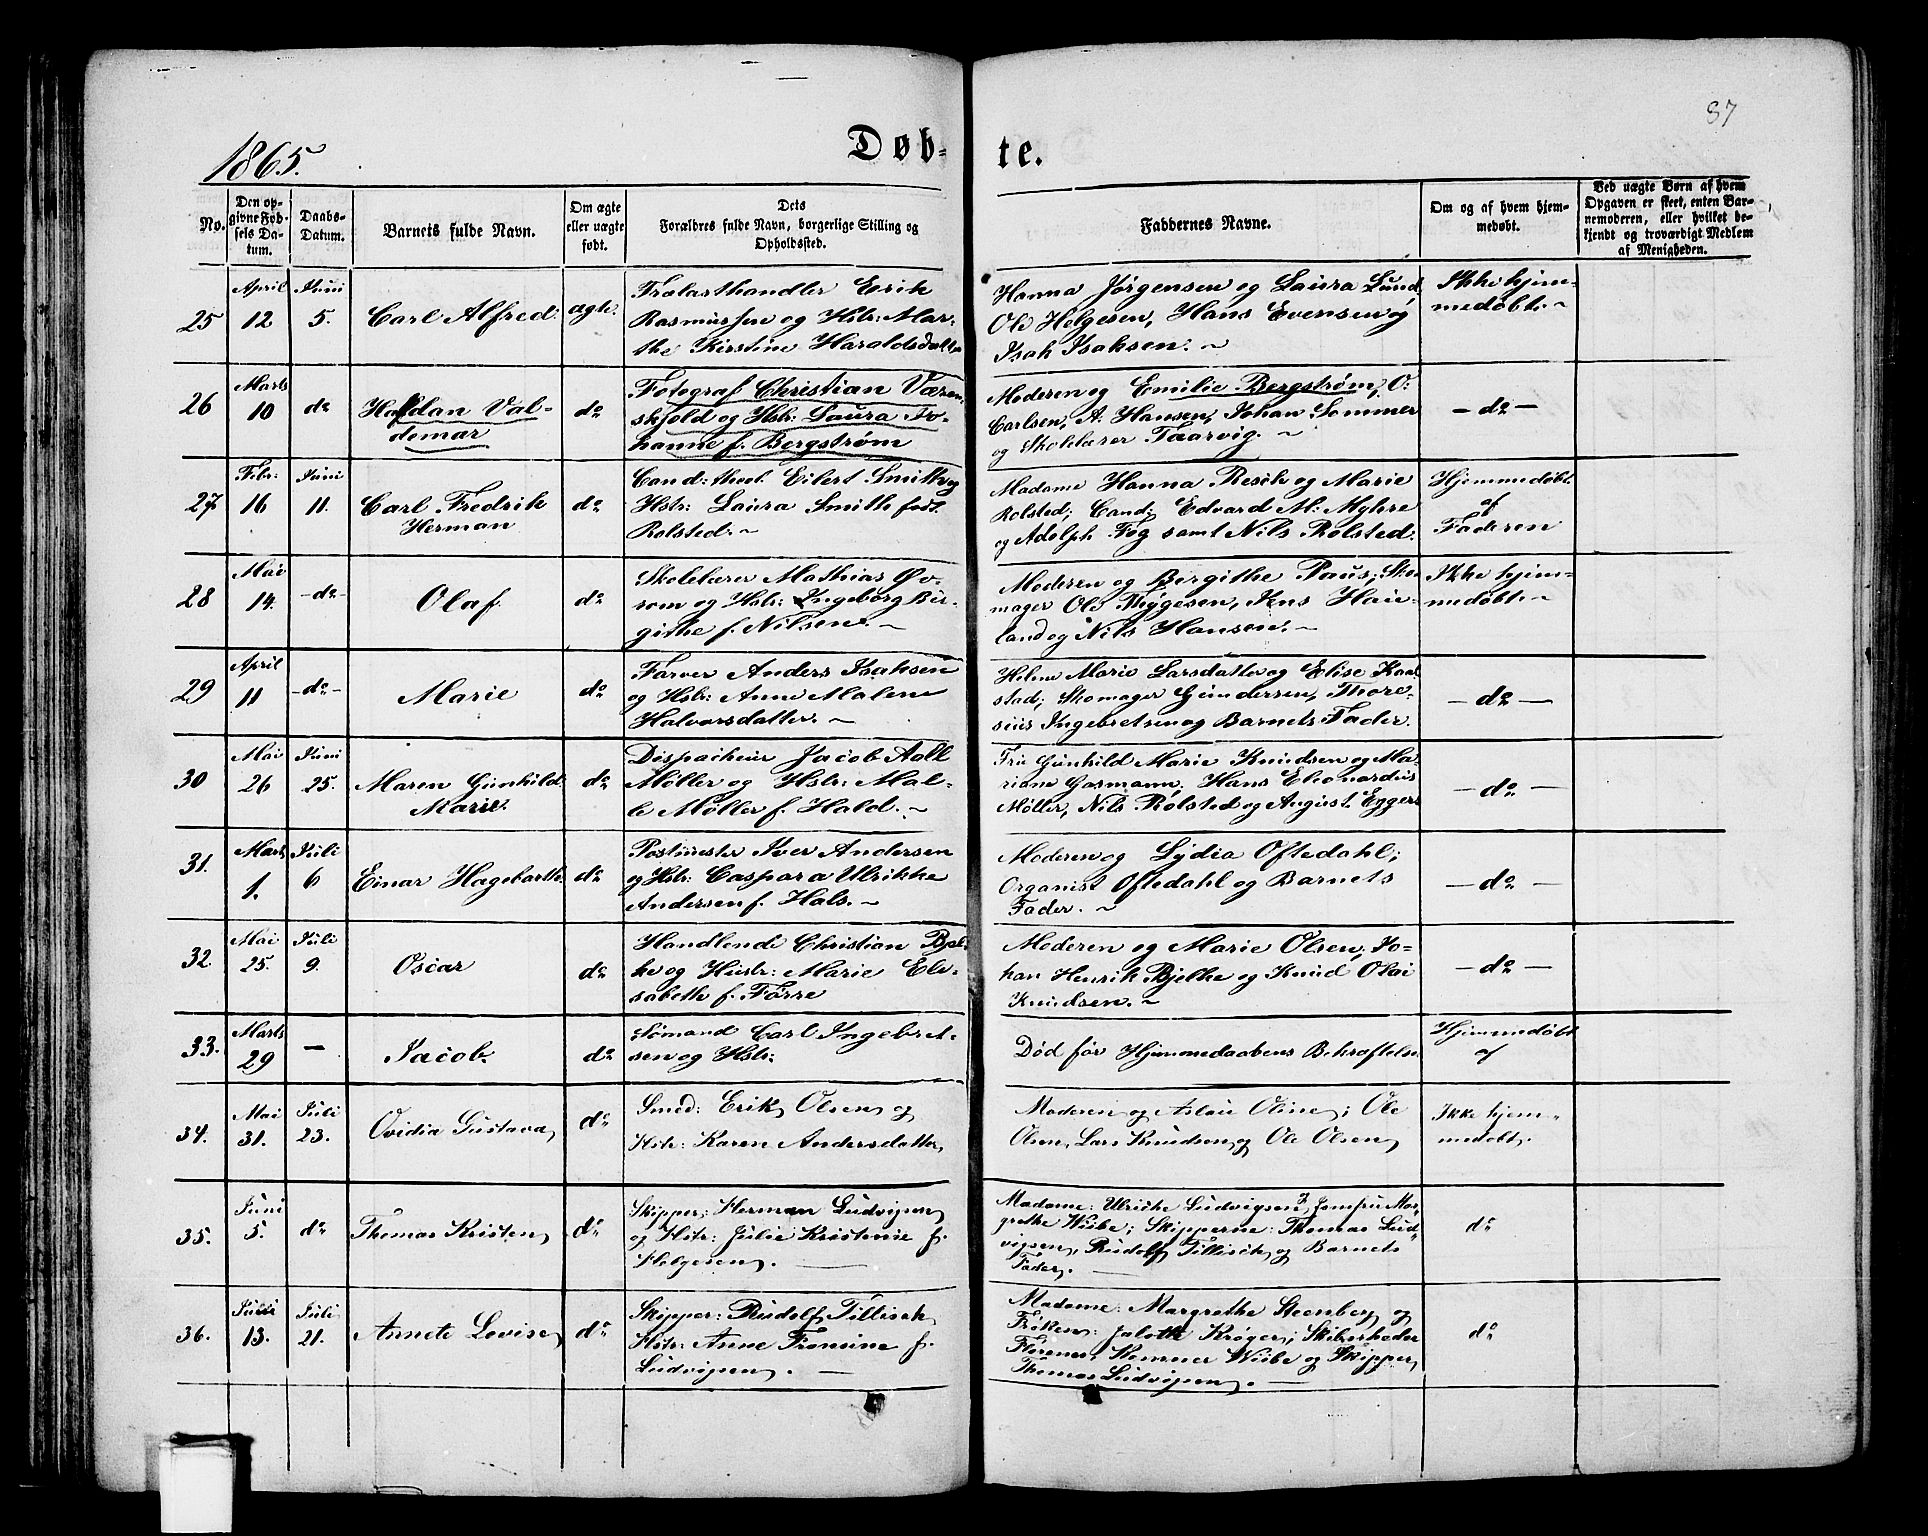 87
1865.
Døb-
te.
No.
Den op-
givne Fød-
sels Da-
tum.
Daabs-
Datum.
Barnets fulde Navn.
Om ægte
eller uægte
født.
Dets
Forældres fulde Navn, borgerlige Stilling og
Opholdssted.
Faddernes Navne.
Om og af hvem hjem-
medøbt.
Ved uægte Børn af hvem
Opgaven er skeet, enten Bar-
nemoderen, eller hvilket be-
kjendt og troværdigt Medlem
af Menigheden.
25
April
12
Juni
5.
Carl Alfred.
ægte.
Trælasthandler Erik
Rasmussen og Hstr: Mar-
the Kirstine Haraldsdatter
Hanna Jørgensen og Laura Lund,
Ole Helgesen, Hans Evensen og
Isak Isaksen. ~
Ikke hjem-
medøbt. ~
26
Marts
10
do
Halfdan Val-
demar
do
Fotograf Christian Væren-
skjold og Hstr: Laura Jo-
hanne f. Bergstrøm
Moderen og Emilie Bergstrøm, O.
Carlsen, A. Hansen, Johan Sommer
og Skolelærer Taarvig. ~
- do -
27
Febr:
16
Juni
11.
Carl Fredrik
Herman
do
Cand: theol. Eilert Smith og
Hstr: Laura Smith født
Rolsted. ~
Madame Hanna Resch og Marie
Rolsted; Cand: Edvard M. Myhre
og Adolph Fog samt Nils Rolsted.
Hjemmedøbt
af
Faderen
28
Mai
14.
- do -
Olaf.
do
Skolelærer Mathias Øv-
rom og Hstr: Ingeborg Bir-
githe f. Nilsen. ~
Moderen og Bergithe Paus; Sko-
mager Ole Thygesen, Jens Haie-
land og Nils Hansen. ~
Ikke hjem-
medøbt. ~
29
April
11
- do -
Marie
do
Farver Anders Isaksen
og Hstr: Anne Malene
Halvorsdatter. ~
Helene Marie Larsdatter og Elise Kaal-
stad; Skomager Gundersen, Thore-
sius Ingebretsen og Barnets Fader.
- do -
30
Mai
26
Juni
25.
Maren Gunhild
Marie.
do
Dispacheur Jacob Aall
Møller og Hstr: Mal-
le Møller f. Hald. ~
Fru Gunhild Marie Knudsen og Ma-
riane Gasmann; Hans Eleonardus
Møller, Nils Rolsted og August Eggers
- do -
31.
Marts
1.
Juli
6
Einar Hagebarth.
do
Postmester Iver Andersen
og Hstr: Caspara Ulrikke
Andersen f. Hals. ~
Moderen og Lydia Oftedahl;
Organist Oftedahl og Barnets
Fader. ~
- do -
32.
Mai
25.
Juli
9.
Oscar
do
Handlende Christian Bjel-
ke og Hustr: Marie Eli-
sabeth f. Førre
Moderen og Marie Olsen, Jo-
han Henrik Bjelke og Knud Olai
Knudsen. ~
- do -
33.
Marts
29
-
Jacob.
do
Sømand Carl Ingebret-
sen og Hstr:
Død før Hjemmedaabens Bekræftelse
Hjemmedøbt
af
34.
Mai
31.
Juli
23.
Ovidia Gustava,
do
Smed: Erik Olsen og
Hstr: Karen Andersdatter,
Moderen og Aslau Oline; Ole
Olsen, Lars Knudsen og Ole Olsen,
Ikke hjem-
medøbt.
35.
Juni
5.
do
Thomas Kristen,
do
Skipper: Herman Ludvigsen
og Hstr: Julie Kristenie f.
Helgesen.
Madame: Ulriche Ludvigsen, Jomfru Mar-
grethe Wiibe; Skipperne: Thomas Lud-
vigsen, Rudolf Tillisch og Barnets
Fader.
do
36.
13.
Juli
21.
Annete Lovise,
do
Skipper: Rudolf Tillisch,
Hstr: Anne Fransine f.
Ludvigsen.
Madame: Margrethe Steenberg og
Frøken: Krøger; Skibsrheder
Kemner Wiibe og Skipper,
Thomas Ludvigsen.
do